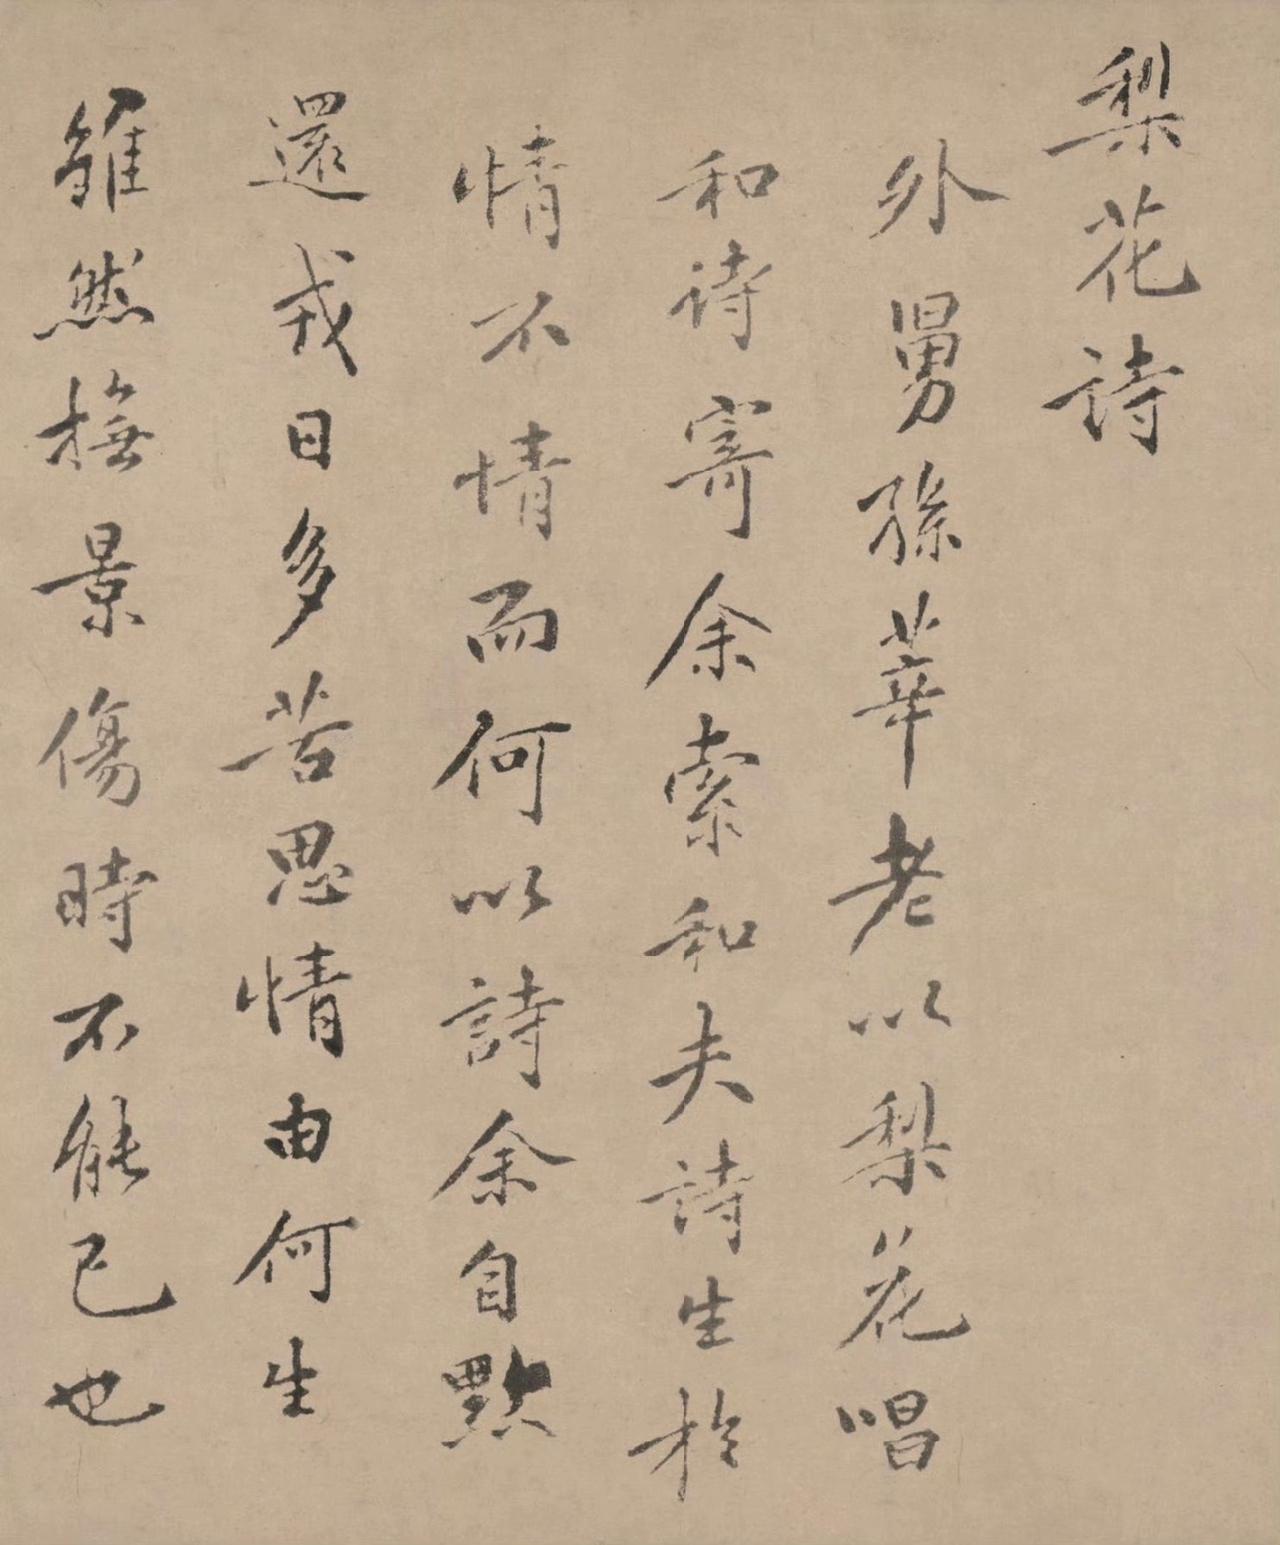 梨花詩
外舅孫莘老以梨花唱
和詩寄余索和夫詩生於
情不情而何以詩余自黔
還戎日多苦思情由何生
雖然撫景傷時不能已也